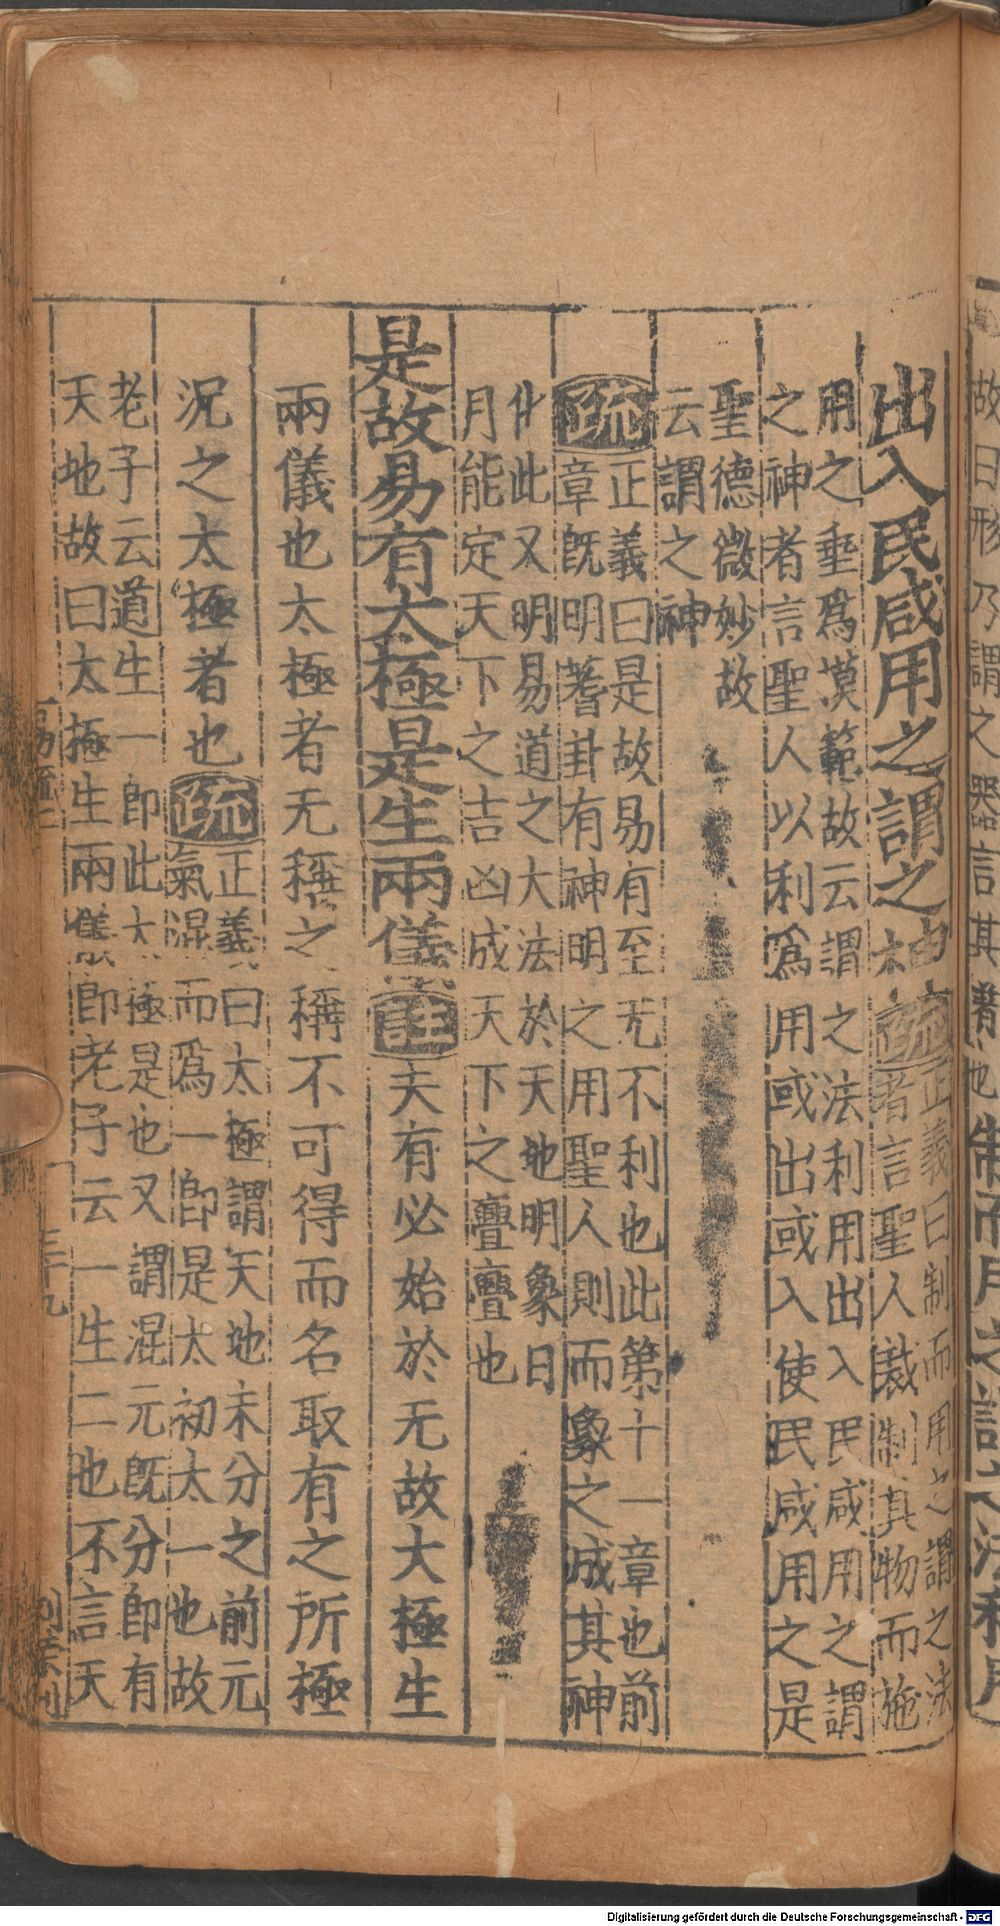 故曰形乃謂之器言其著也制而用之謂之法利用
出入民咸用之謂之神疏正義曰制而用之謂之法
者言聖人裁制其物而施
用之垂爲模範故云謂之法利用出入民咸用之謂
之神者言聖人以利爲用或出或入使民咸用之是
聖德微妙故
云謂之神
疏正義曰是故易有至无不利也此第十一章也前
章旣明蓍卦有神明之用聖人則而象之成其神
化此又明易道之大法於天地明象日
月能定天下之吉凶成天下之亹亹也
是故易有太極是生兩儀註夫有必始於无故大極生
兩儀也太極者无稱之稱不可得而名取有之所極
況之太極者也疏正義曰太極謂天地未分之前元
氣混而爲一卽是太初太一也故
老子云道生一卽此太極是也又謂混元旣分卽有
天地故曰太極生兩儀卽老子云一生二也不言天
易疏
三十九
Digitalisierung gefördert durch die Deutsche Forschungsgemeinschaft - DFG